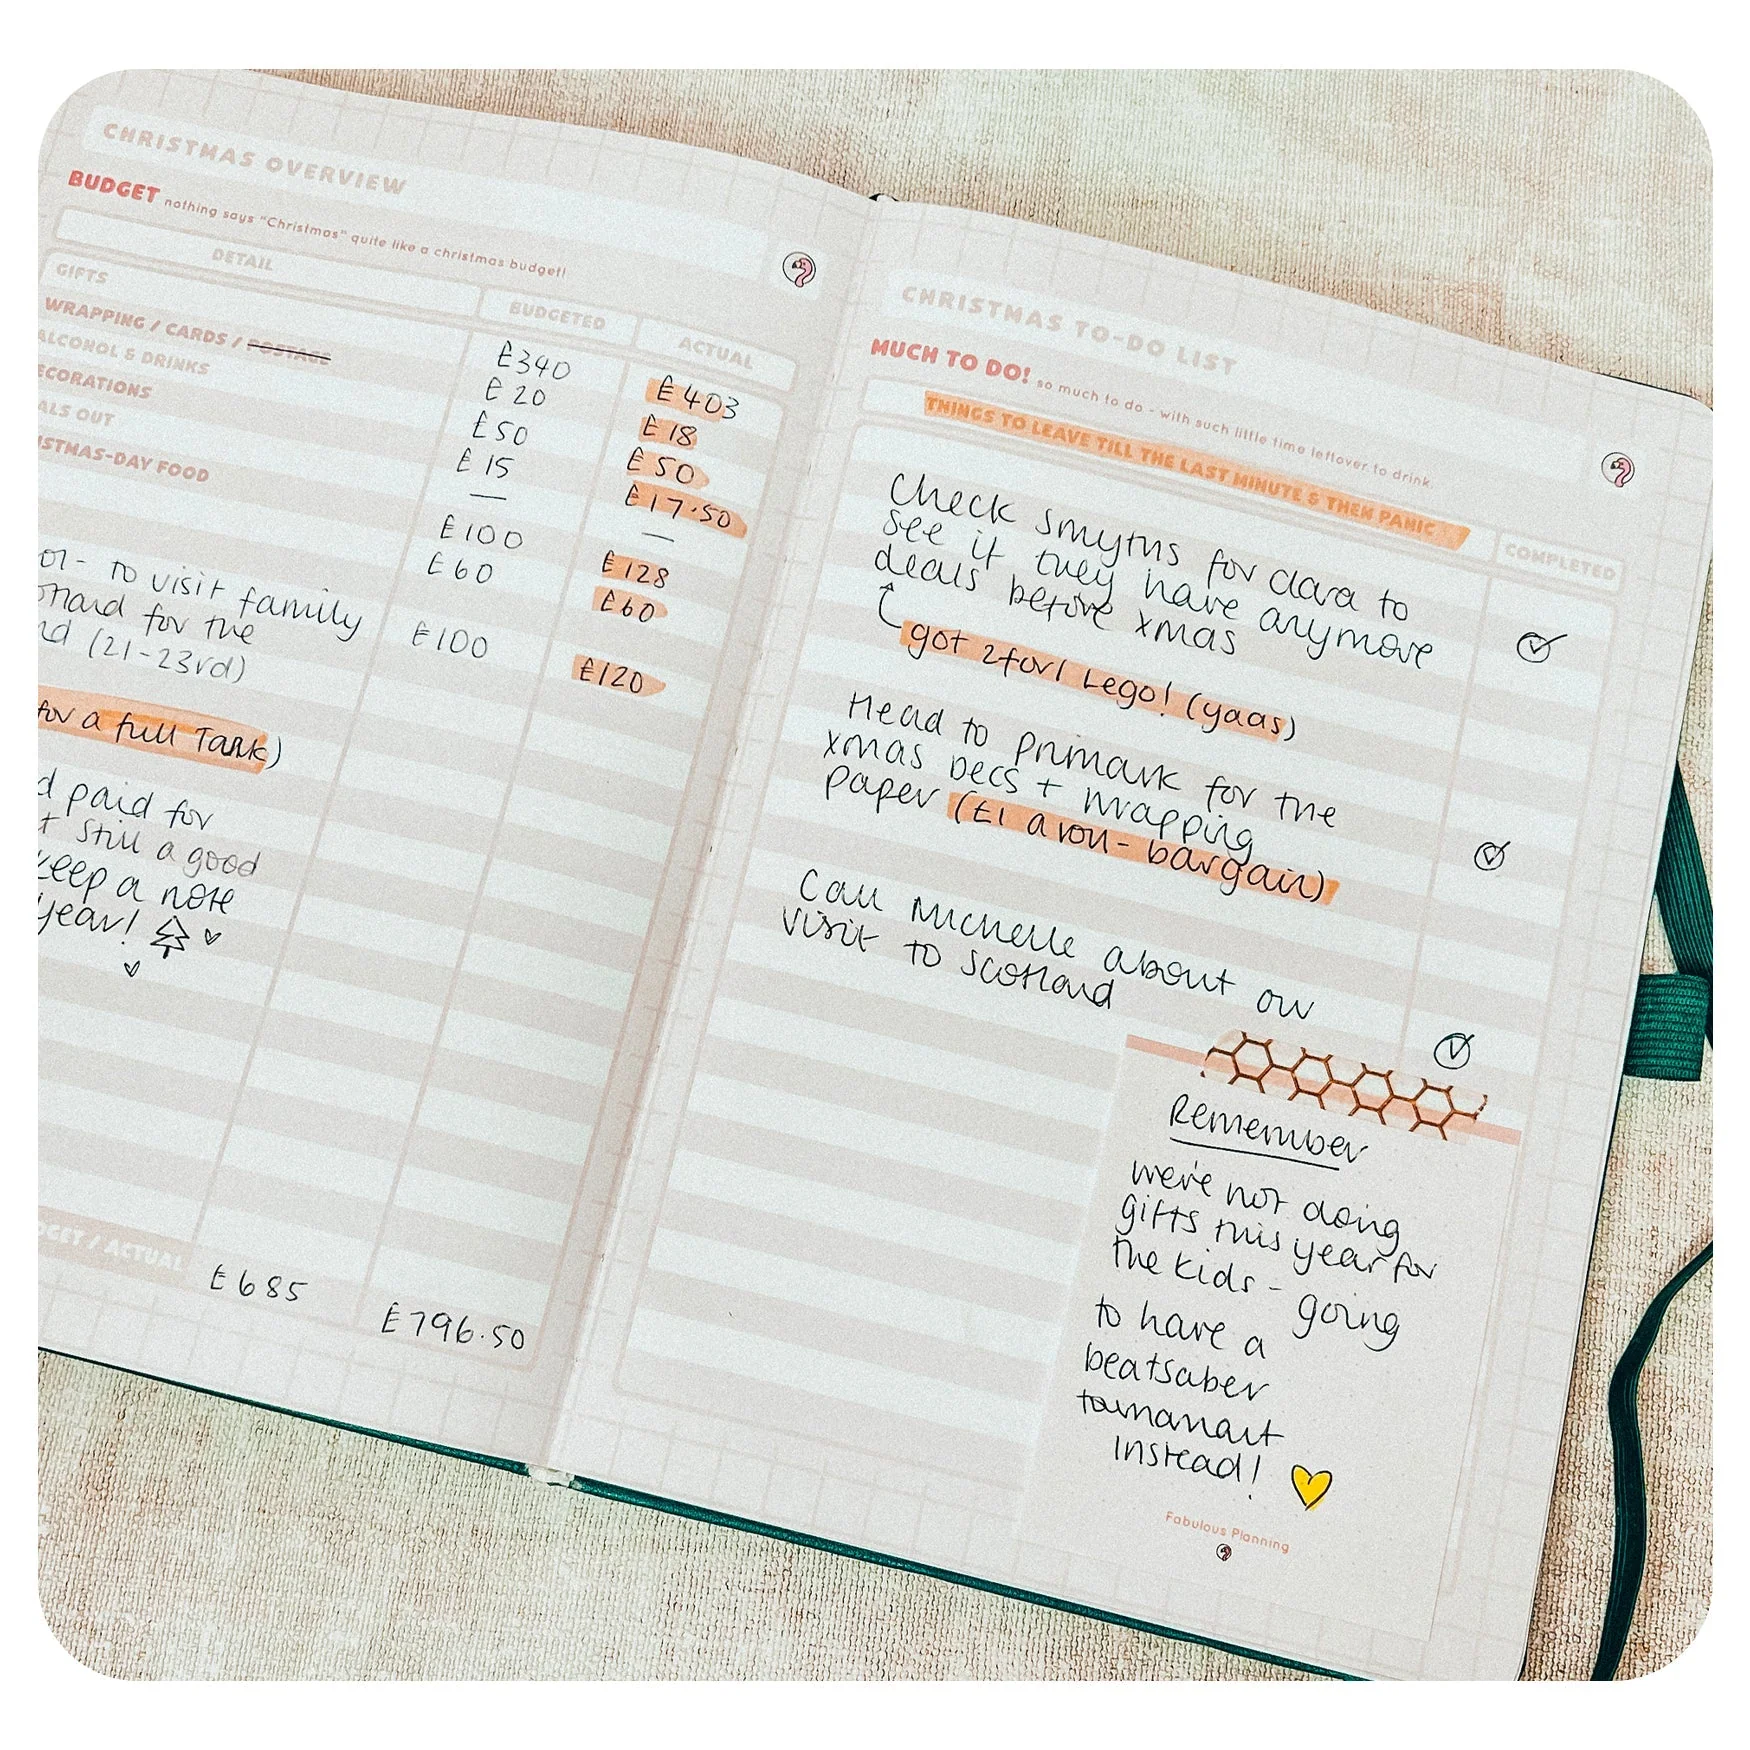 CHRISTMAS OVERVIEW
BUDGET nothing says "Christmas" quite like a christmas budget!
DETAIL
BUDGETED
ACTUAL
GIFTS
£340
£403
WRAPPING / CARDS / POSTAGE
£20
£18
ALCOHOL & DRINKS
£50
£50
ECORATIONS
£15
£17.50
ALS OUT
—
—
STMAS-DAY FOOD
£100
£128
£60
£60
- to visit family
for the
(21-23rd)
£100
£120
for a full Tank)
d paid for
t still a good
keep a note
year!
GET / ACTUAL
£685
£796.50
CHRISTMAS TO-DO LIST
MUCH TO DO! so much to do - with such little time leftover to drink
THINGS TO LEAVE TILL THE LAST MINUTE & THEN PANIC
COMPLETED
Check smyths for clara to
see if they have anymore
deals before xmas
got 2for1 Lego! (yaas)
Head to primark for the
xmas Decs + wrapping
paper (£1 a roll - bargain)
Call Michelle about our
visit to Scotland
Remember
we're not doing
gifts this year for
the kids - going
to have a
beatsaber
tournamant
instead!
Fabulous Planning